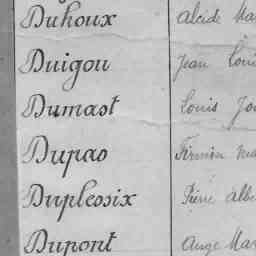 Duhoux Alcide Ma
Duigou Jean Loui
Dumast Louis Jo
Dupas Firmin Ma
Duplessix Pierre Albe
Dupont Ange Mar